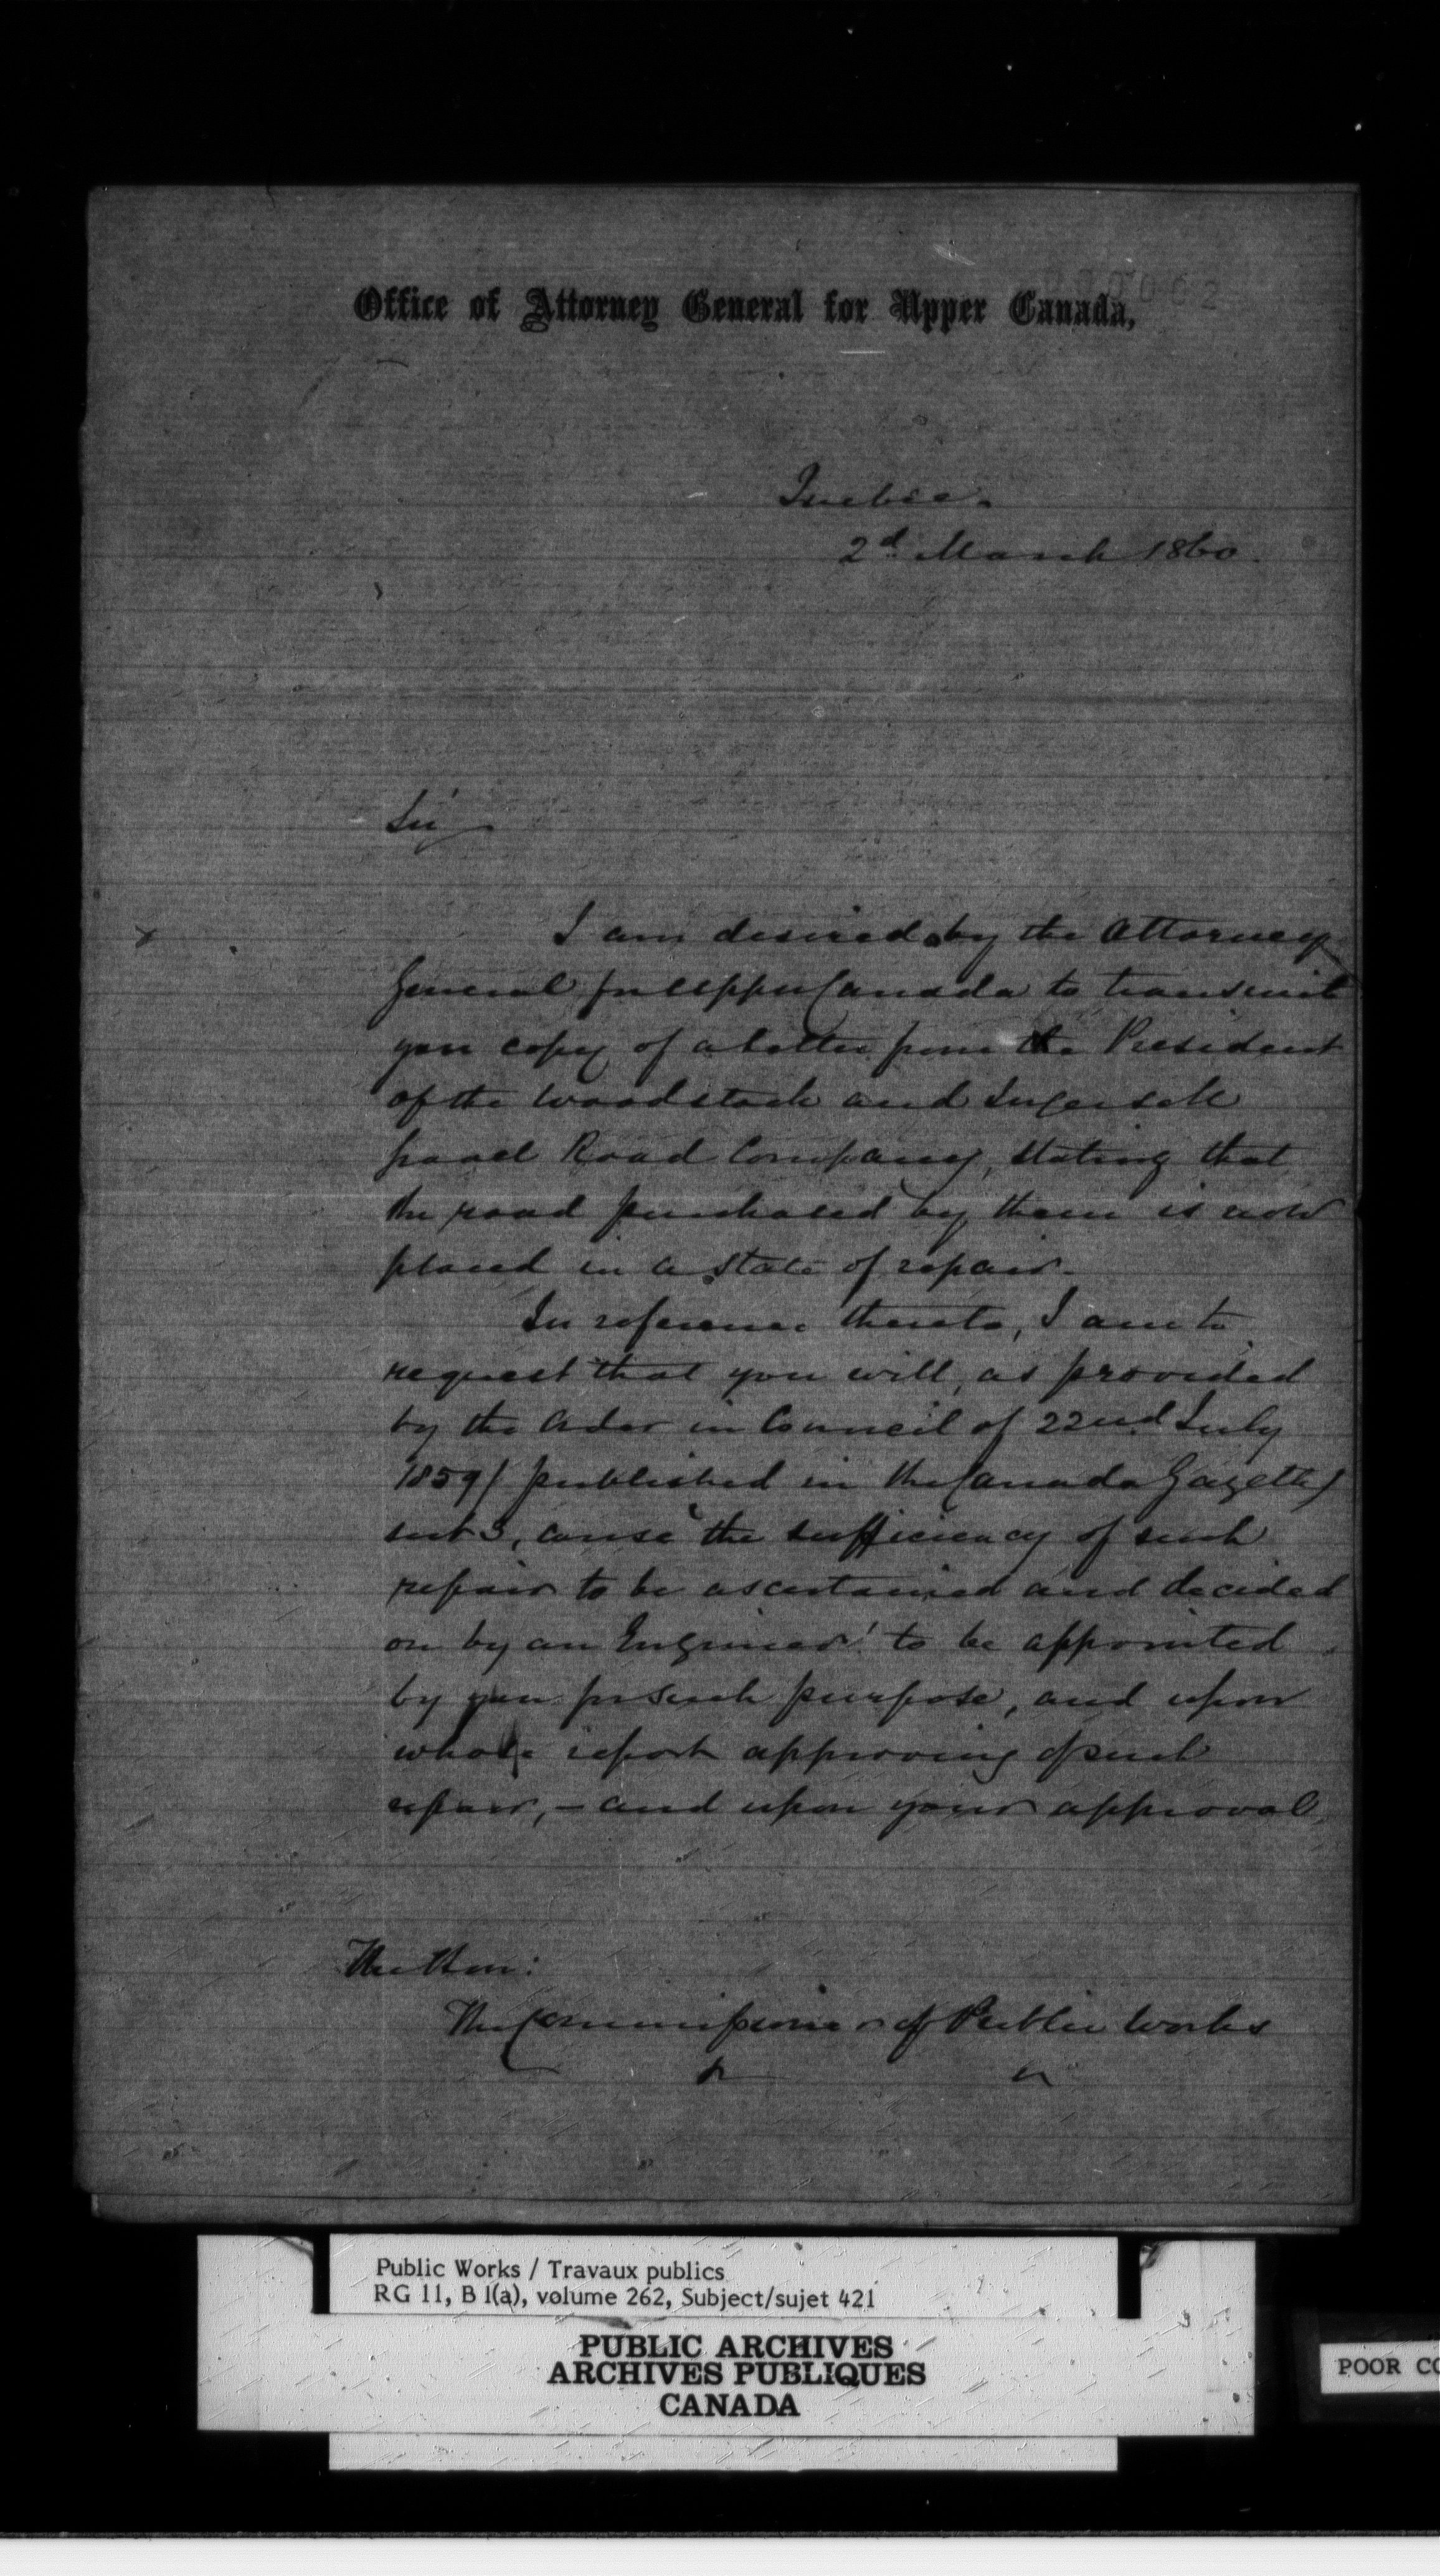 Office of Attorney General for Upper Canada,
Quebec.
2d March 1860.
Sir,
I am desired by the Attorney
General for Upper Canada to transmit
you copy of a letter from the President
of the Woodstock and Ingersoll
Gravel Road Company, stating that
the road purchased by them is now
placed in a state of repair.
In reference thereto, I am to
request that you will, as provided
by the Order in Council of 22nd July
1859 / published in the Canada Gazette /
sect 3, cause the sufficiency of such
repair to be ascertained and decided
on by an Engineer to be appointed
by you for such purpose, and upon
whose report approving of such
repair, – and upon your approval
The Hon:
The Commissioner of Public Works
Public Works / Travaux publics
RG 11, B 1(a), volume 262, Subject/sujet 421
PUBLIC ARCHIVES
ARCHIVES PUBLIQUES
CANADA
POOR CO